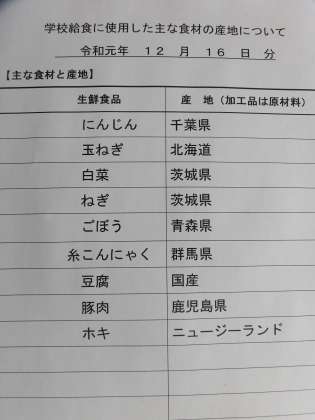 学校給食に使用した主な食材の産地について
令和元年 12 月 16 日 分
【主な食材と産地】
生鮮食品 産 地（加工品は原材料）
にんじん 千葉県
玉ねぎ 北海道
白菜 茨城県
ねぎ 茨城県
ごぼう 青森県
糸こんにゃく 群馬県
豆腐 国産
豚肉 鹿児島県
ホキ ニュージーランド